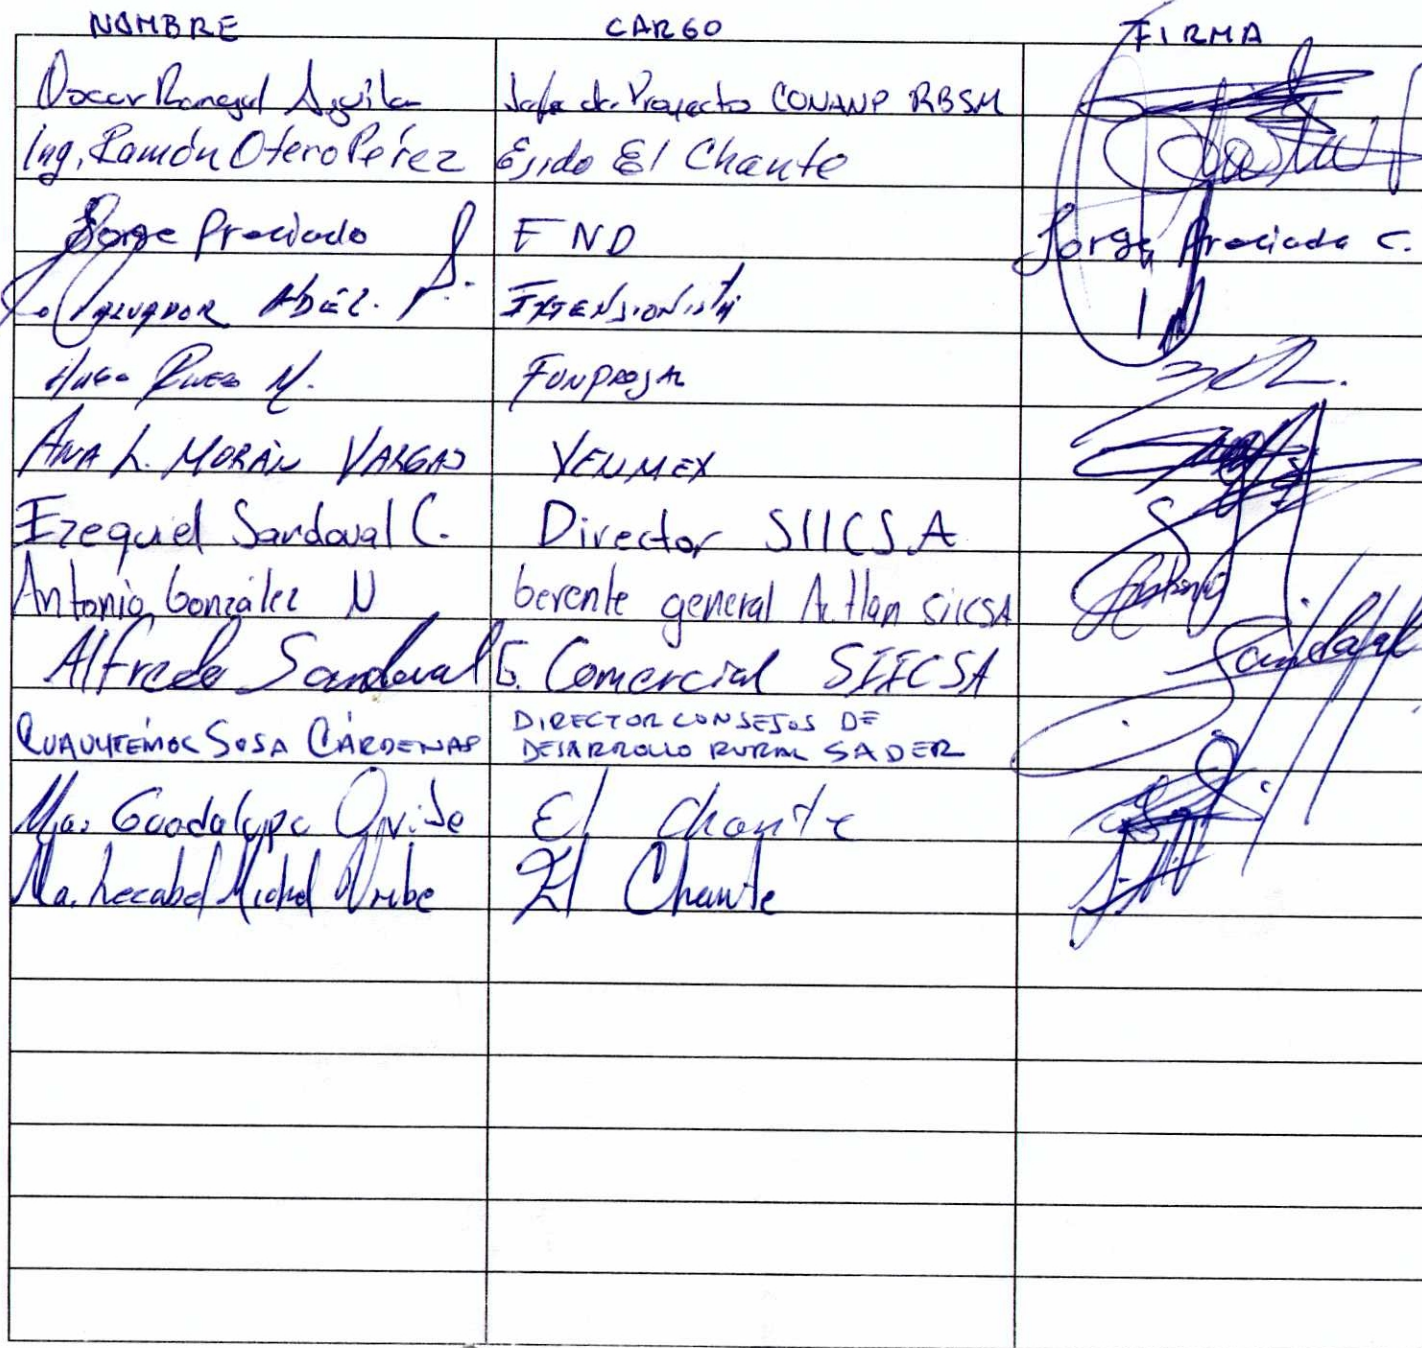 NOMBRE CARGO FIRMA
Oscar Rangel Aguilar Jefe de Proyecto CONANP RBSM
Ing. Ramón Otero Pérez Ejido El Chante
Jorge Preciado FND Jorge Preciado C.
Salvador Extensionista
Hugo M. FUNPROJAL
ANA L. MORÁN VARGAS YENMEX
Ezequiel Sandoval C. Director SIICSA
Antonio González N Gerente general Autlan siicsA
Alfredo Sandoval G. Comercial SIICSA Sandoval
CUAUHTÉMOC SOSA CÁRDENAS DIRECTOR CONSEJOS DE
DESARROLLO RURAL SADER
Ma. Guadalupe El Chante
Ma. Michel Uribe El Chante